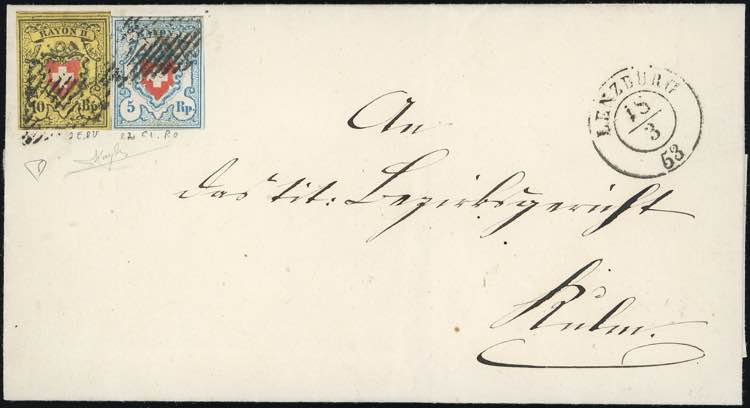 RAYON II
10 Rp.
5 Rp.
LENZBURG
18/3
53
An
das tit: Bezirksgericht
Kulm.